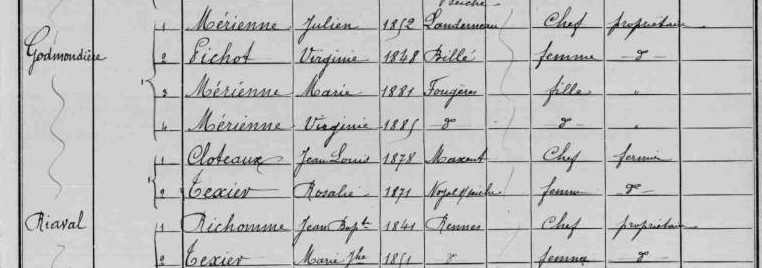 1 Mérienne Julien 1852 Landerneau Chef propriétaire
Godmondière 2 Pichot Virginie 1848 Billé femme d
3 Mérienne Marie 1881 Fougères fille "
4 Mérienne Virginie 1885 d d "
1 Cloteaux Jean Louis 1878 Maxent Chef fermier
2 Texier Rosalie 1871 femme d
Riaval 1 Richomme Jean Bapte 1841 Rennes Chef propriétaire
2 Texier Marie Jhe 1851 d femme d